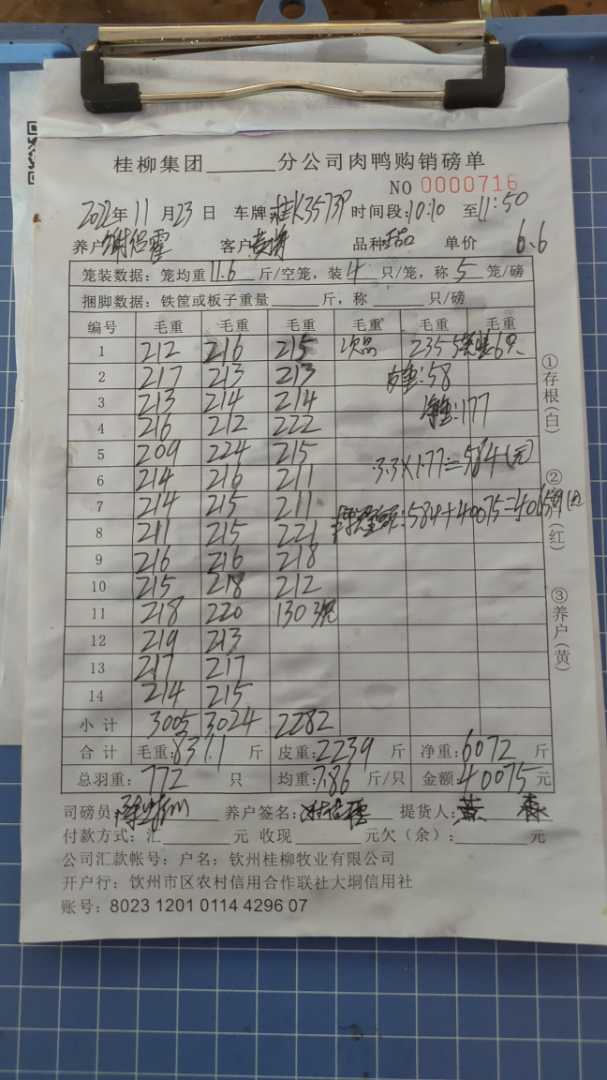 桂柳集团______分公司肉鸭购销磅单
NO 0000716
2022年 11月 23日 车牌:桂K3573P 时间段:10:10 至11:50
养户: 客户: 品种: 单价 6.6
笼装数据:笼均重11.6斤/空笼,装4只/笼,称5笼/磅
捆脚数据:铁筐或板子重量______斤,称______只/磅
编号 毛重 毛重 毛重 毛重 毛重 毛重
1 212 216 215 次品 235 5 69
2 217 213 213 皮重:58
3 213 214 214 净重:177
4 216 212 222
5 209 224 215
6 214 216 211 3.3×177=584(元)
7 214 215 211 :584+40075=40659
8 211 215 221
9 216 216 218
10 215 218 212
11 218 220 130 3笼
12 219 213
13 217 217
14 214 215
小计 3005 3024 2282
合计 毛重:8311斤 皮重:2239斤 净重:6072斤
总羽重:772只 均重:7.86斤/只 金额:40075元
司磅员: 养户签名: 提货人:
付款方式:汇______元 收现______元欠(余):______元
公司汇款帐号:户名:钦州桂柳牧业有限公司
开户行:钦州市区农村信用合作联社大垌信用社
账号:8023 1201 0114 4296 07
①存根(白)
②(红)
③养户(黄)